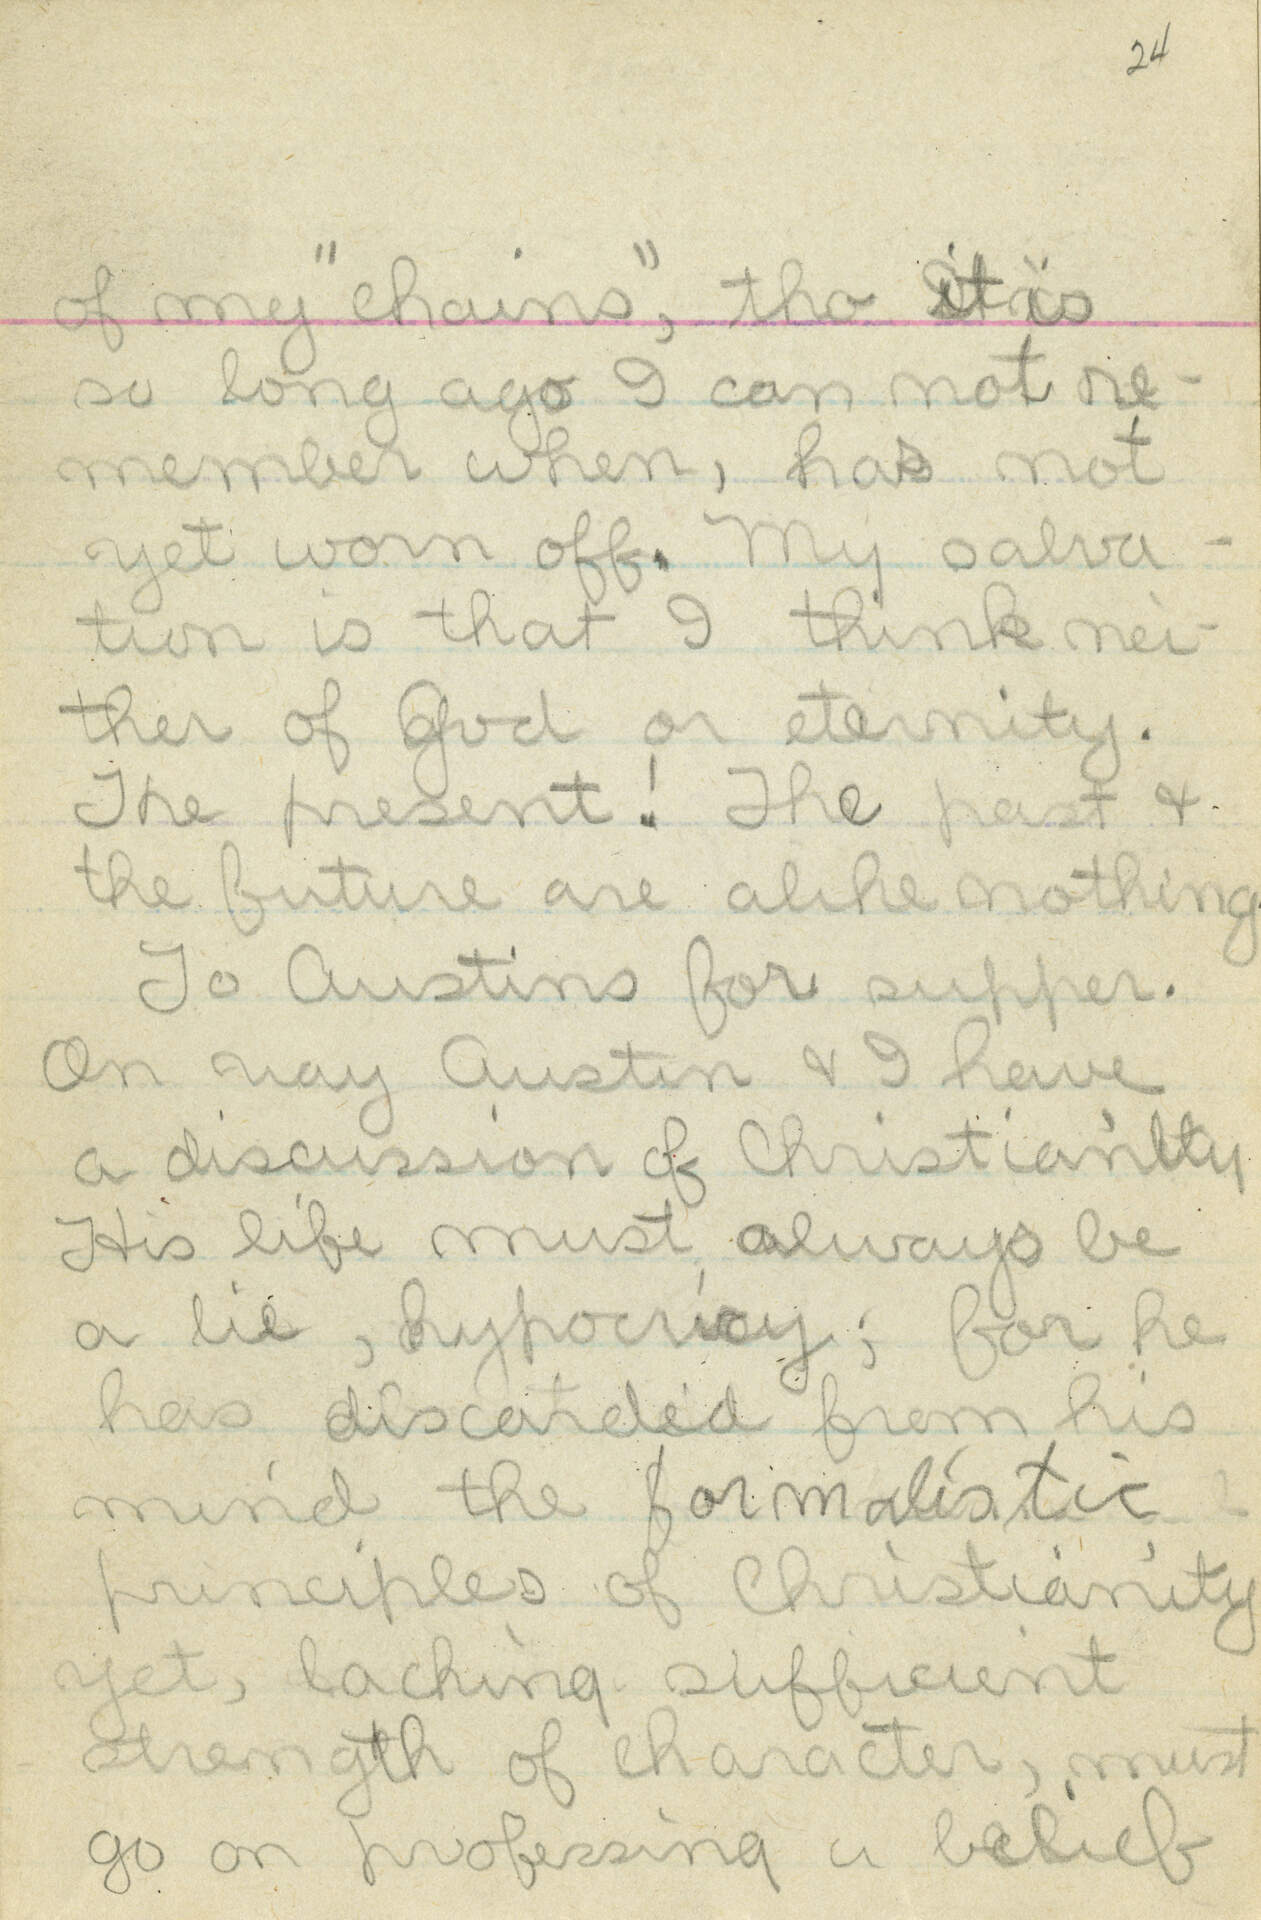 24
of my "chains", tho it is
so long ago I can not re-
member when, has not
yet worn off. My salva-
tion is that I think nei-
ther of God or eternity.
The present! The past &
the future are alike nothing.
To Austins for supper.
On way Austin & I have
a discussion of Christianity
His life must always be
a lie, hypocricy; for he
has discarded from his
mind the formalistic
principles of Christianity
yet, lacking sufficient
strength of character, must
go on professing a belief